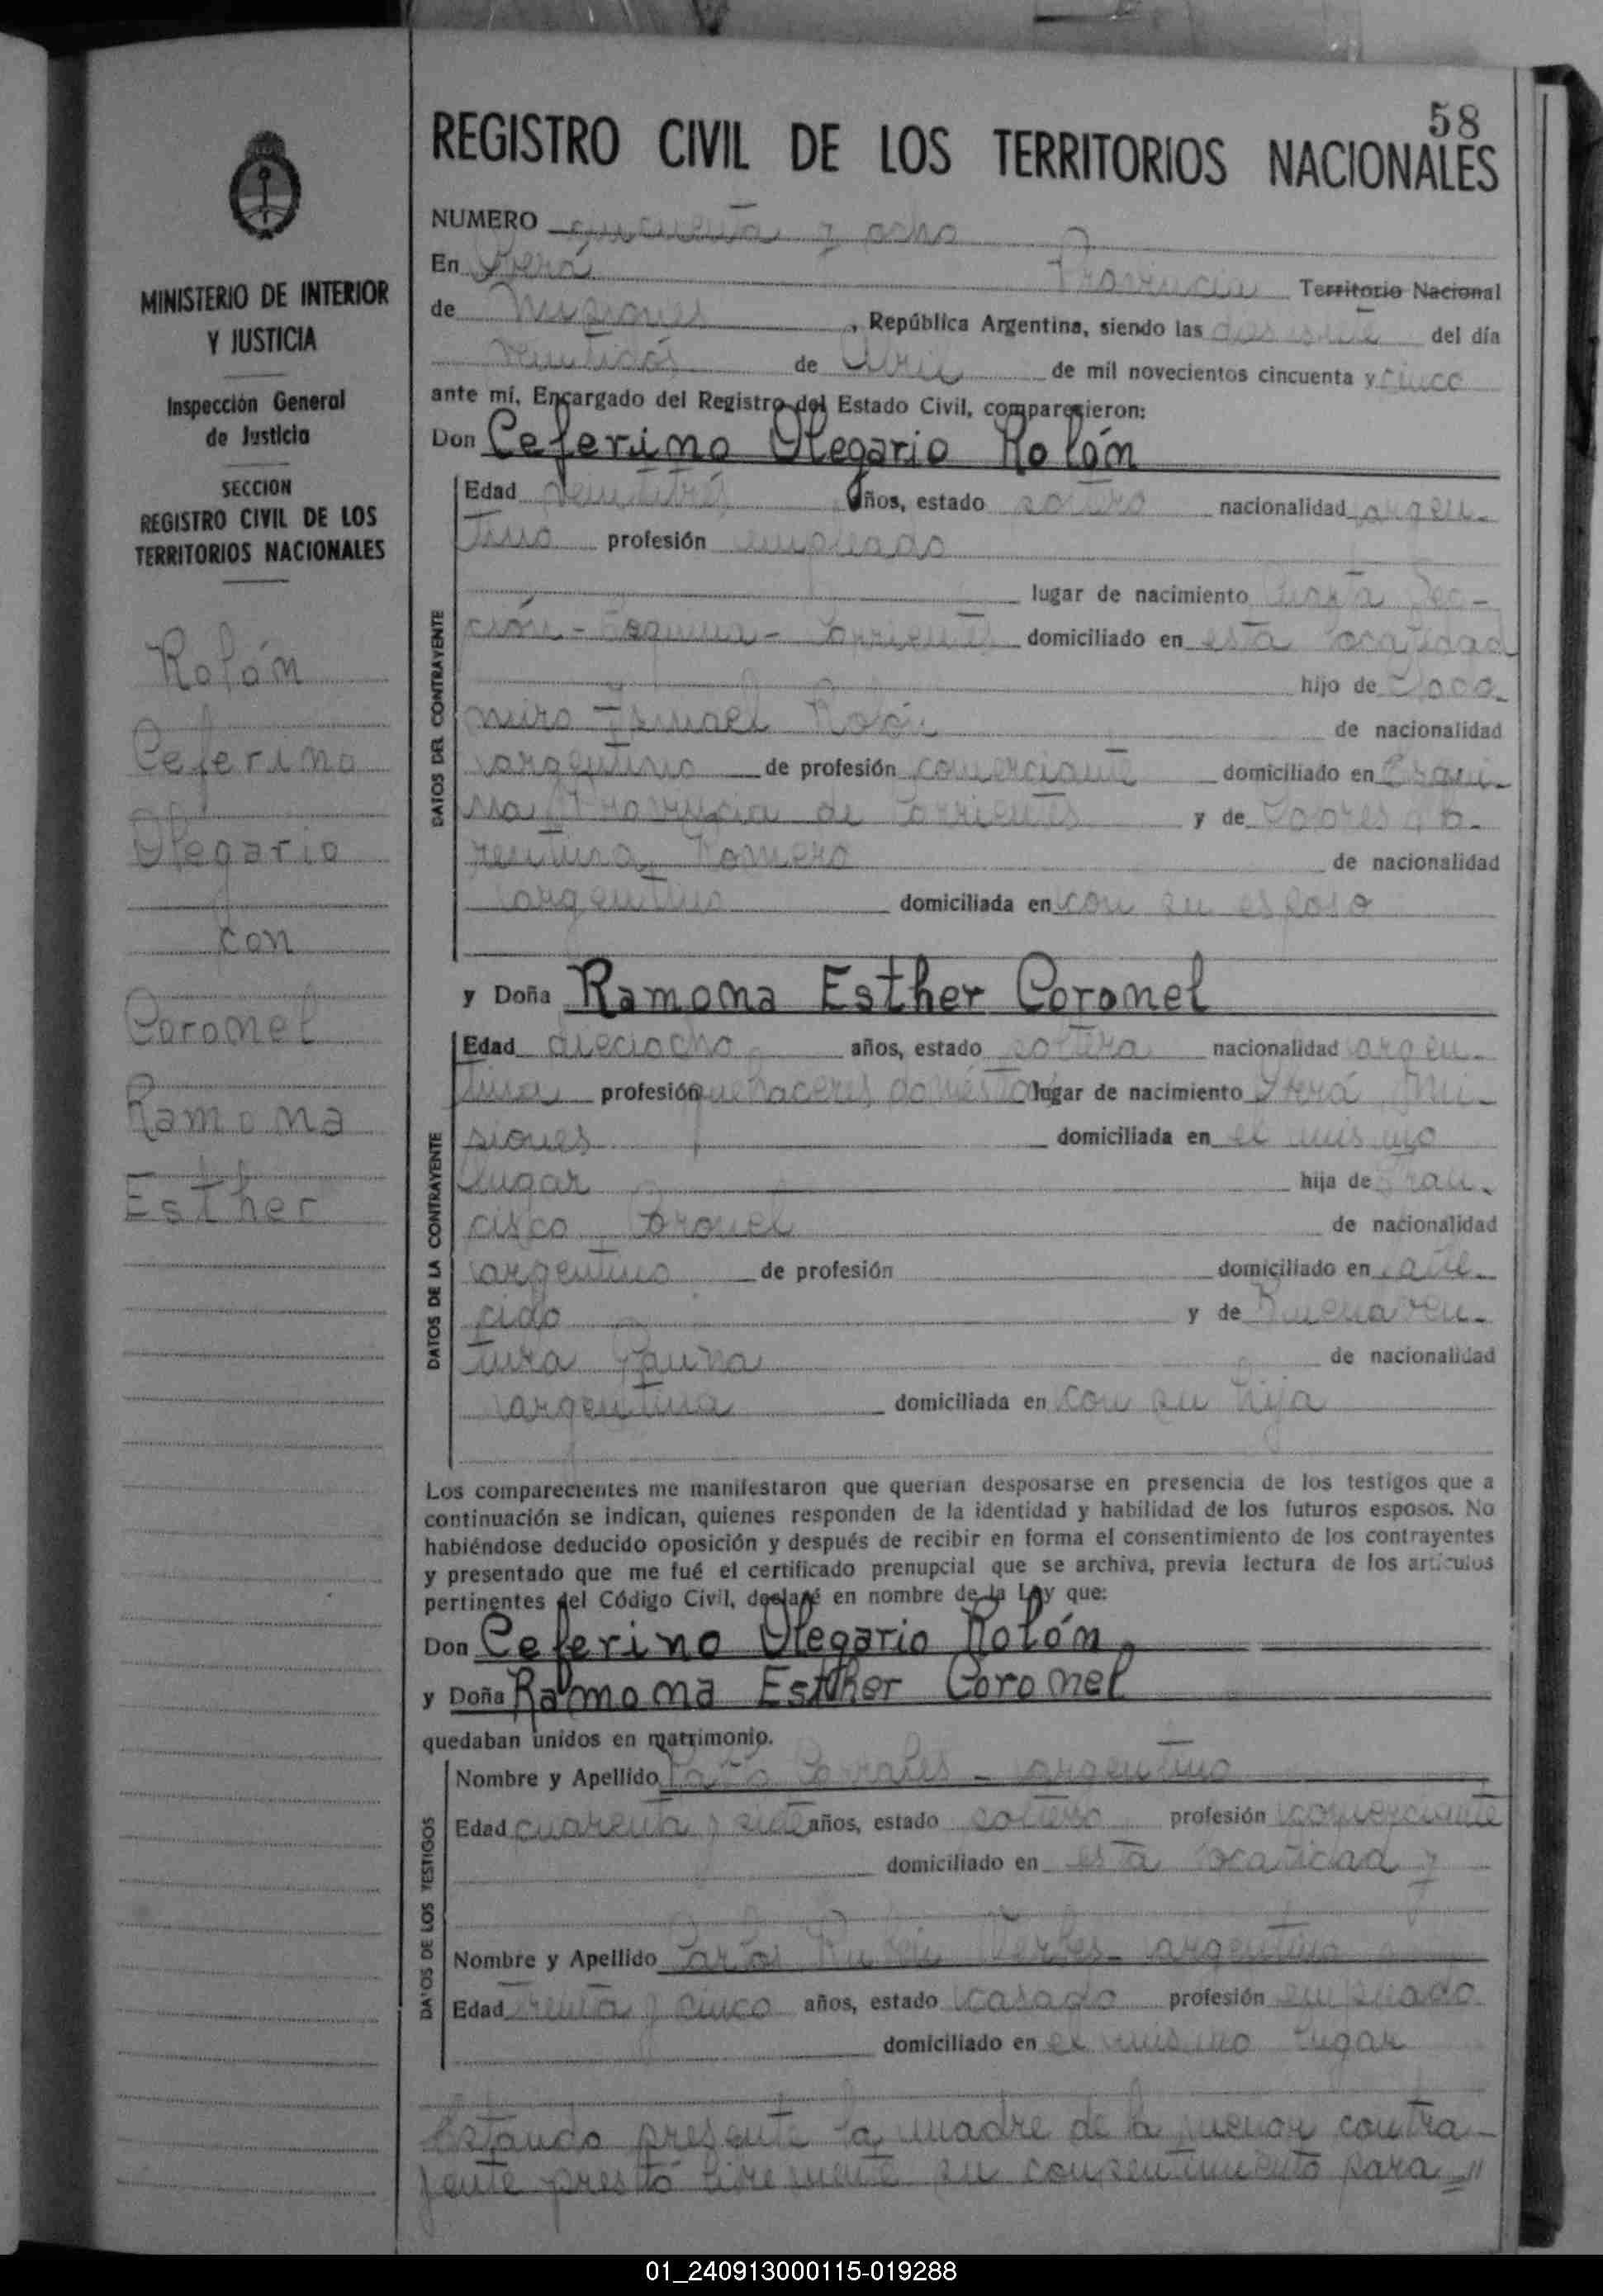 58
REGISTRO CIVIL DE LOS TERRITORIOS NACIONALES
MINISTERIO DE INTERIOR
Y JUSTICIA
Inspección General
de Justicia
SECCION
REGISTRO CIVIL DE LOS
TERRITORIOS NACIONALES
Rolón
Ceferino
Olegario
con
Coronel
Ramona
Esther
NUMERO cincuenta y ocho
En Oberá Provincia Territorio Nacional
de Misiones, República Argentina, siendo las dies siete del día
veintidós de Abril de mil novecientos cincuenta y cinco
ante mí, Encargado del Registro del Estado Civil, comparecieron:
Don Ceferino Olegario Rolón
DATOS DEL CONTRAYENTE
Edad veintitrés años, estado soltero nacionalidad argen-
tino profesión empleado
lugar de nacimiento Cuarta Sec-
ción - Esquina - Corrientes domiciliado en esta localidad
hijo de
miro Ismael Rolón de nacionalidad
argentino de profesión comerciante domiciliado en Esqui-
na Provincia de Corrientes y de
Romero de nacionalidad
argentina domiciliada en con su esposo
y Doña Ramona Esther Coronel
DATOS DE LA CONTRAYENTE
Edad dieciocho años, estado soltera nacionalidad argen-
tina profesión quehaceres domést. lugar de nacimiento Mi-
siones domiciliada en el mismo
lugar hija de Fran-
cisco Coronel de nacionalidad
argentino de profesión domiciliado en
cido y de Buenaven-
tura Gauna de nacionalidad
argentina domiciliada en con su hija
Los comparecientes me manifestaron que querían desposarse en presencia de los testigos que a
continuación se indican, quienes responden de la identidad y habilidad de los futuros esposos. No
habiéndose deducido oposición y después de recibir en forma el consentimiento de los contrayentes
y presentado que me fué el certificado prenupcial que se archiva, previa lectura de los artículos
pertinentes del Código Civil, declaré en nombre de la Ley que:
Don Ceferino Olegario Rolón
y Doña Ramona Esther Coronel
quedaban unidos en matrimonio.
DATOS DE LOS TESTIGOS
Nombre y Apellido Corrales - argentino
Edad cuarenta y siete años, estado soltero profesión comerciante
domiciliado en esta localidad y
Nombre y Apellido Carlos Rubén argentino
Edad treinta y cinco años, estado casado profesión empleado
domiciliado en el mismo lugar
Estando presente la madre de la menor contra-
yente prestó libremente su consentimiento para =//
01_240913000115-019288